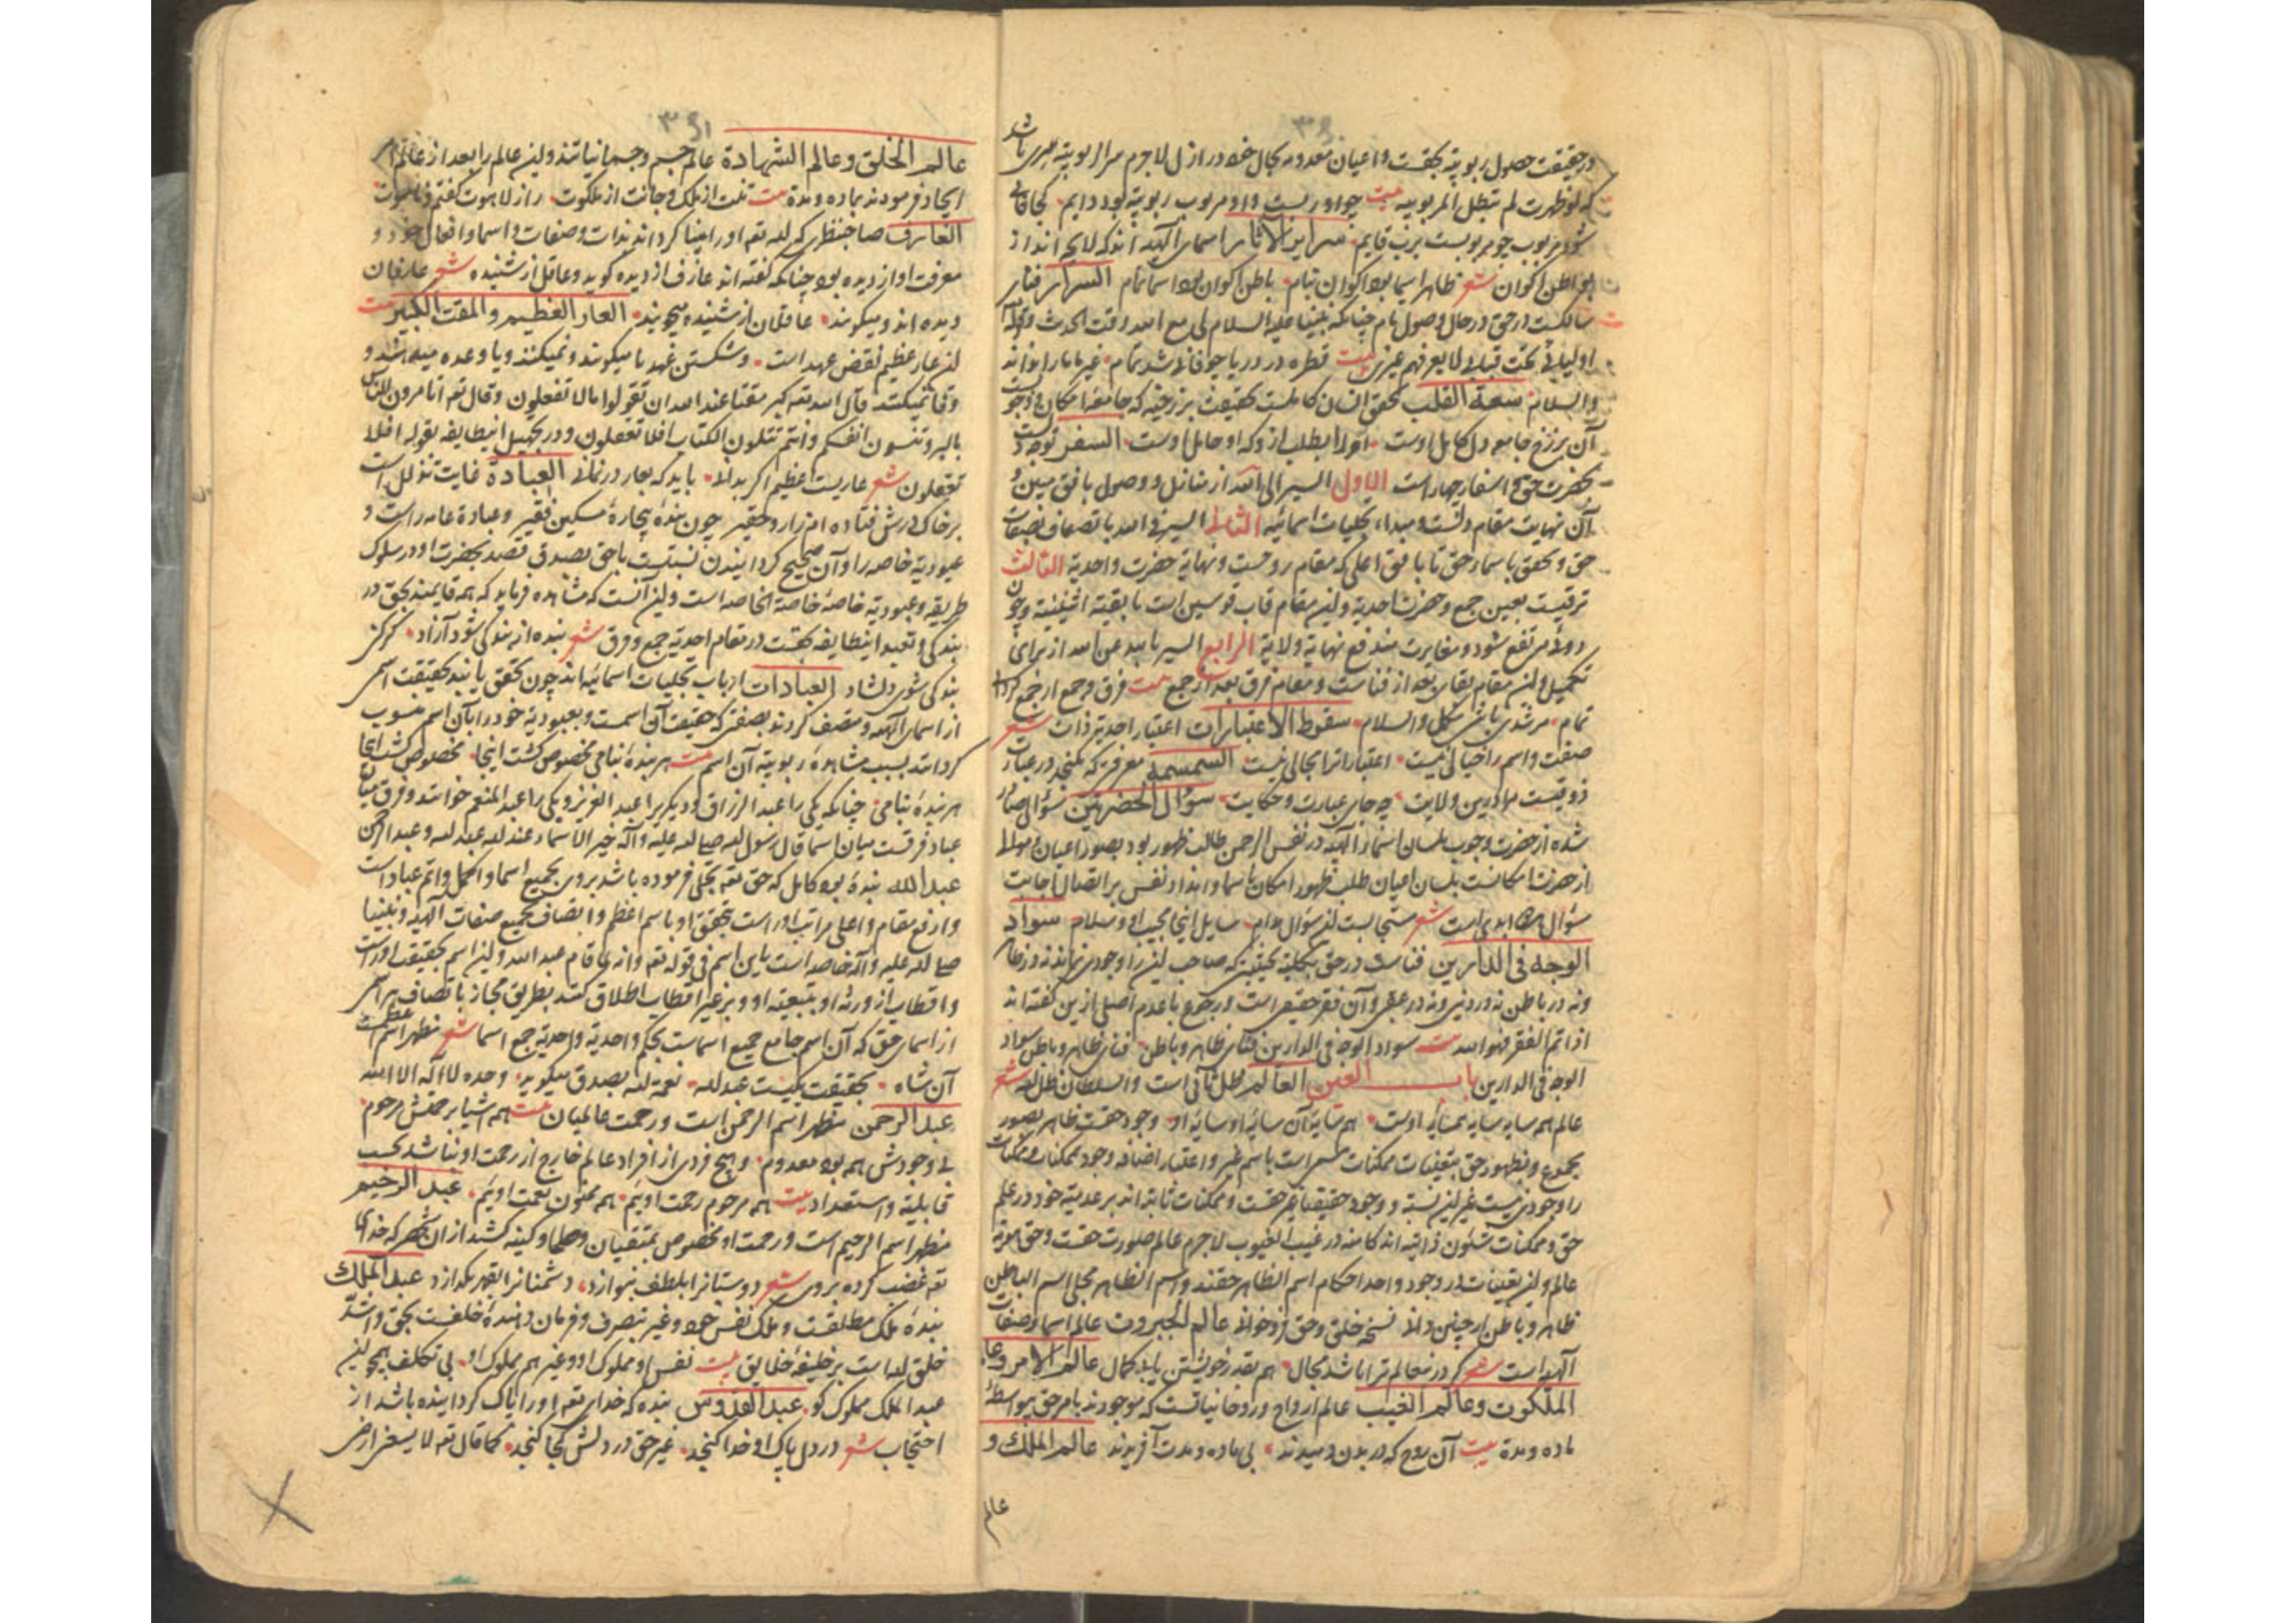 در حقیقت حصول ربوبیة بحقست و اعیان معدومه بحال خود در ازل لاجرم سر الربوبیة سری باشد
که لو ظهرت لم تبطل الربوبیه بیت چو او ربست و او مربوب ربوبیة بود دایم کجا فانی
شود مربوب چو مربوبست برب قایم سرایر الآثار اسمای الهیه اند که لایح اند از
بواطن اکوان شعر ظاهر اسما بود اکوان تمام باطن اکوان بود اسما تمام السرایر فنای
سالکست در حق در حال وصول تام چنانکه نبینا علیه السلام لی مع الله وقت الحدیث و قوله
اولیائی تحت قبابی لا یعرفهم غیری بیت قطره در دریا چو فانی شد تمام غیر ما ما را نداند
والسلام سعة القلب تحقق انسان کاملست بحقیقت برزخیه که جامعه امکان و وجوبست
آن برزخ جامعه دل کامل اوست او را بطلب از و که او حامل اوست السفر توجه دلست
بحضرت حق و اسفار چهار است الاول السیر الی الله از منازل و وصول بافق مبین و
آن نهایت مقام دلست و مبداء تجلیات اسمائیه الثانی السیر فی الله باتصاف بصفات
حق و تحقق باسماء حق تا بافق اعلی که مقام روحست و نهایة حضرت واحدیة الثالث
ترقیست بعین جمع و حضرت احدیة و این مقام قاب قوسین است ما بقیة اثنینیة و چون
دوئی مرتفع شود و مغایرت مندفع نهایة ولایة الرابع السیر بالله عن الله از برای
تکمیل و این مقام بقای بعد از فناست و مقام فرق بعد از جمع بیت فرق و جمع ار جمع کردی
تمام مرشدی باشی مکمل والسلام سقوط الاعتبارات اعتبار احدیة ذات شعر
صفت و اسم را خیالی نیست اعتبارات را مجالی نیست السمسمة معرفتی که نکنجد در عبارت
ذوقیست مرا درین ولایت چه جای عبارت و حکایت سؤال الحضرتین سؤالی صادر
شده از حضرت وجوب بلسان اسماء الهیه در نفس الرحمن طالب ظهور بود بصور اعیان و سؤال
از حضرت امکانست بلسان اعیان طلب ظهور امکان باسما و امداد نفس بر اتصال اجابت
سؤال هر دو ابدی است شعر مستجابست این سؤال مدام سایل اینجا مجیب او و سلام سواد
الوجه فی الدارین فناست در حق بکلیة بحیثیتی که صاحب این را وجودی نماند نه در ظاهر
و نه در باطن نه در دنیی و نه در عقبی و آن فقر حقیقی است و رجوع با عدم اصلی ازین گفته اند
اذا تم الفقر فهو الله بیت سواد الوجه فی الدارین فنای ظاهر و باطن فنای ظاهر و باطن سواد
الوجه فی الدارین باب العین العالم ظل ثانی است والسلطان ظل الله شعر
عالم همه سایه سایه همسایه اوست هم سایه آن سایه او سایه او وجود حقست ظاهر بصور
مجموع و بظهور حق بتعینات ممکنات مسمی است باسم غیر و اعتبار اضافه وجود ممکنات و ممکنات
را وجودی نیست غیر این نسبة و وجود حقیقة عین حقست و ممکنات ثابته اند بر عدمیة خود در علم
حق و ممکنات شئون ذاتیه اند کامنه در غیب الغیوب لاجرم عالم صورت حقست و حق هویة
عالم و این تعینات در وجود واحد احکام اسم الظاهر حقند و اسم الظاهر مجلی اسم الباطن
ظاهر و باطن ار چنین دانی نسخه خلق و حق فروخوانی عالم الجبروت عالم اسماء و صفات
الهیه است شعر گر در نعالم ترا باشد مجال هم بقدر خویشتن یابی کمال عالم الامر و عالم
الملکوت و عالم الغیب عالم ارواح و روحانیاتست که موجودند بامر حق بیواسطهٔ
ماده و مدة بیت آن روح که در بدن دمیدند بی ماده و مدت آفریدند عالم الملک و
عالم
عالم الخلق و عالم الشهادة عالم جسم و جسمانیاتند و این عالم را بعد از عالم امر
ایجاد فرمودند بماده و مدة بیت تنت از ملک و جانت از ملکوت راز لاهوت گفتم و ناسوت
العارف صاحب نظری که الله تعه او را بینا کرداند بذات و صفات و اسما و افعال خود و
معرفت او از دیده بود چنانکه گفته اند عارف از دیده گوید و عاقل از شنیده شعر عارفان
دیده اند و میگویند عاقلان از شنیده میجویند العار العظیم و المقت الکبیر بیت
این عار عظیم نقض عهد است و شکستن عهد یا میگویند و نمیکنند و یا وعده میدهند و
وفا نمیکنند قال الله تعه کبر مقتا عند الله ان تقولوا ما لا تفعلون و قال تعه اتامرون الناس
بالبر و تنسون انفسکم و انتم تتلون الکتاب افلا تعقلون و در تجهیل اینطایفه بقوله افلا
تعقلون شعر عاریست عظیم اگر بدانی باید که بعار در نمانی العبادة غایت تذلل است
بر خاک درش فتاده ام زار و حقیر چون بندهٔ بیچارهٔ مسکین فقیر و عبادة عامه راست و
عبودیة خاصه را و آن صحیح کردانیدن نسبتست باحق بصدق قصد بحضرت او در سلوک
طریقه و عبودیة خاصهٔ خاصة الخاصه است و این آنست که مشاهده فرماید که همه قایمند بحق در
بندگی و تعبد اینطایفه بحقست در مقام احدیة جمع و فرق شعر بنده از بندگی شود آزاد گر کنی
بندگی شوی دلشاد العبادات ارباب تجلیات اسمائیه اند چون تحقق یابند بحقیقت اسمی
از اسمای الهیه و متصف گردند بصفتی که حقیقت آن اسمست و بعبودیة خود را بآن اسم منسوب
کردانند بسبب مشاهدهٔ ربوبیة آن اسم بیت هر بندهٔ بنامی مخصوص گشت اینجا مخصوص گشت اینجا
هر بندهٔ بنامی چنانکه یکی را عبد الرزاق و دیگری را عبد العزیز و یکی را عبد المنعم خوانند و فرق میان
عباد فرقست میان اسما قال رسول الله صلی الله علیه و آله خیر الاسماء عند الله عبد الله و عبد الرحمن
عبد الله بندهٔ بود کامل که حق تعه تجلی فرموده باشد بروی بجمیع اسما و اکمل و اتم عباد است
و ارفع مقام و اعلی مراتب اوراست بتحقق او باسم اعظم و اتصاف بجمیع صفات الهیه و نبینا
صلی الله علیه و آله خاصه است باین اسم فی قوله تعه و انه لما قام عبد الله و این اسم بحقیقت اوراست
و اقطاب از ورثه او بتبعیة او و بر غیر اقطاب اطلاق کنند بطریق مجاز باتصاف هر اسمی
از اسمای حق که آن اسم جامع جمیع اسماست بحکم واحدیة و احدیة جمع اسما شعر مظهر اسم اعظمست
آن شاه بحقیقت یکیست عبد الله نعمة الله بصدق میگوید وحده لا اله الا الله
عبد الرحمن مظهر اسم الرحمن است و رحمت عالمیان بیت هم اشیا برحمتش مرحوم
بی وجودش همه بود معدوم و هیچ فردی از افراد عالم خارج از رحمت او نباشد بحسب
قابلیة و استعداد بیت هم مرحوم رحمت اوئیم هم ممنون نعمت اوئیم عبد الرحیم
مظهر اسم الرحیم است و رحمت او مخصوص بمتقیان و صلحا و کینه کشد از آن شخص که خدای
تعه غضب کرده بروی شعر دوستانرا بلطف بنوازد دشمنانرا بقهر بگدازد عبد الملک
بندهٔ ملک مطلقست و ملک نفس خود و غیر بتصرف و فرمان دهندهٔ خلقست بحق و اشدّ
خلق الله است بر خلیفهٔ خلایق بیت نفس او مملوک او و غیر هم مملوک او بی تکلف همچو این
عبد الملک مملوک کو عبد القدوس بنده که خدای تعه او را پاک کردانیده باشد از
احتجاب شعر در دل پاک او خدا گنجد غیر حق در دلش کجا گنجد کما قال تعه لا یسعنی ارضی